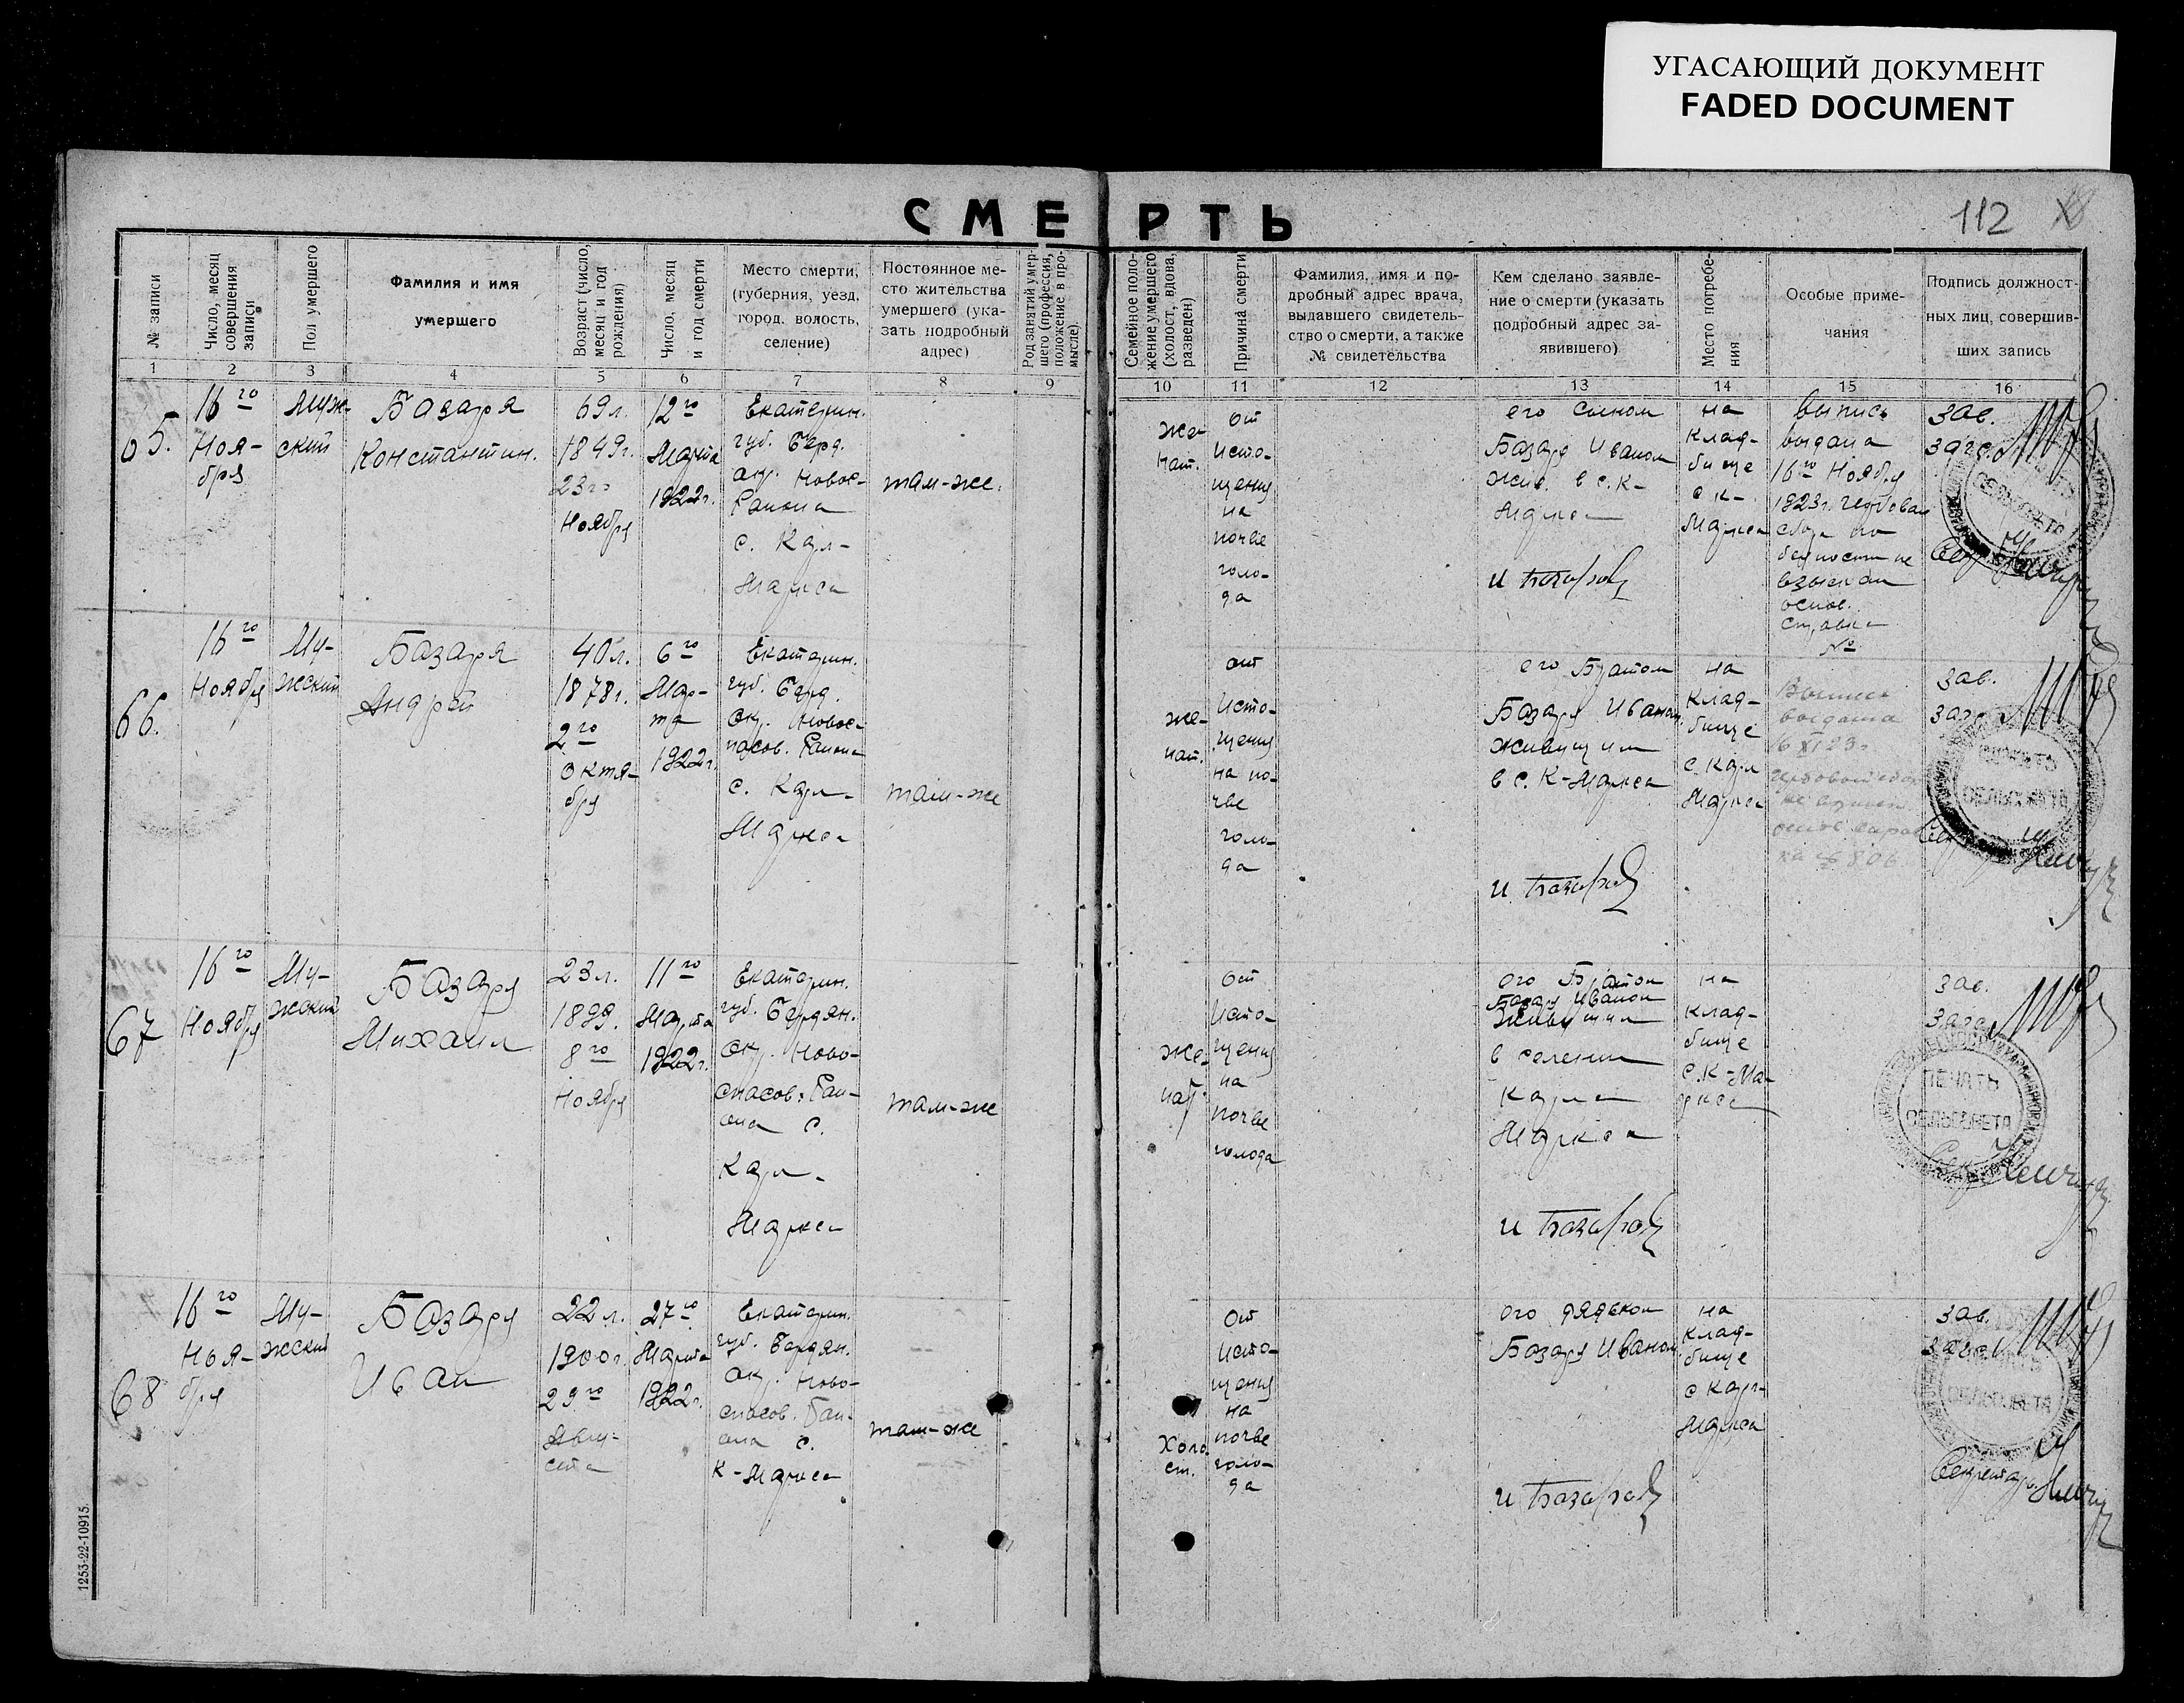 УГАСАЮЩИЙ ДОКУМЕНТ
FADED DOCUMENT
СМЕРТЬ
112
№ записи
Число, месяц
совершения
записи
Пол умершего
Фамилия и имя
умершего
Возраст (число,
месяц и год
рождения)
Число, месяц
и год смерти
Место смерти,
(губерния, уезд,
город, волость,
селение)
Постоянное ме-
сто жительства
умершего (ука-
зать подробный
адрес)
Род занятий умер-
шего (профессия,
положение в про-
мысле).
Семейное поло-
жение умершего
(холост, вдова,
разведен)
Причина смерти
Фамилия, имя и по-
дробный адрес врача,
выдавшего свидетель-
ство о смерти, а также
№ свидетельства
Кем сделано заявле-
ние о смерти (указать
подробный адрес за-
явившего)
Место погребе-
ния
Особые приме-
чания
Подпись должност-
ных лиц, совершив-
ших запись
1 2 3 4 5 6 7 8 9 10 11 12 13 14 15 16
65.
16го
Ноя-
бря
Муж-
ский
Базаря
Константин.
69 л.
1849г.
23го
Ноября
12го
Марта
1922г.
Екатерин.
губ. Берд.
окр. Новос-
Района
с. Карл-
Маркса
там-же.
же-
нат.
от
исто-
щения
на
почве
голо-
да
его сыном
Базаря Иваном
жив. в с. К-
Маркса
И Базаров
на
клад-
бище
с К-
Маркса
выпись
выдана
16го Ноября
1923г. гербовый
сбор по
бедности не
взыскан
основ.
справка
№
зав.
загс.
ПЕЧАТЬ
СЕЛЬСОВЕТА
66.
16го
Ноября
Му-
жский
Базаря
Андрей
40 л.
1878г.
2го
Октя-
бря
6го
Мар-
та
1922г.
Екатерин.
губ. Берд.
Окр. Новос-
пасов. Района
с. Карл-
Маркса
там-же
же-
нат.
от
исто-
щения
на по-
чве
голо-
да
его Братом
Базаря Иваном
живущим
в с. К-Маркса
И Базаров
на
Клад-
бище
с. Карл
Маркса
Выпись
выдана
16 XI 23г
зав.
загс
ПЕЧАТЬ
СЕЛЬСОВЕТА
67
16го
Ноября
Му-
жский
Базаря
Михаил
23 л.
1899.
8го
Ноября
11го
Марта
1922г.
Екатерин.
губ. Бердян.
Окр. Ново-
спасов. Рай-
она с.
Карл-
Маркса
там-же
же-
нат.
от
исто-
щения
на
почве
голода
его Братом
Базаря Иваном
живущим
в селении
Карла
Маркса
И Базаров
на
клад-
бище
с. К-Ма-
ркса
зав.
загс.
ПЕЧАТЬ
СЕЛЬСОВЕТА
68
16го
Ноя-
бря
Му-
жский
Базаря
Иван
22 л.
1900г.
29го
Авгу-
ста
27го
Марта
1922г.
Екатерин.
губ. Бердян.
Окр. Ново-
спасов. Рай-
она с.
К-Маркса
там-же
Холо-
ст.
от
исто-
щения
на
почве
голо-
да
его дядькой
Базаря Иваном
И Базаров
на
клад-
бище
с Карл-
Маркса
зав.
загс
СЕЛЬСОВЕТА
Секретарь
1253-22-10915.